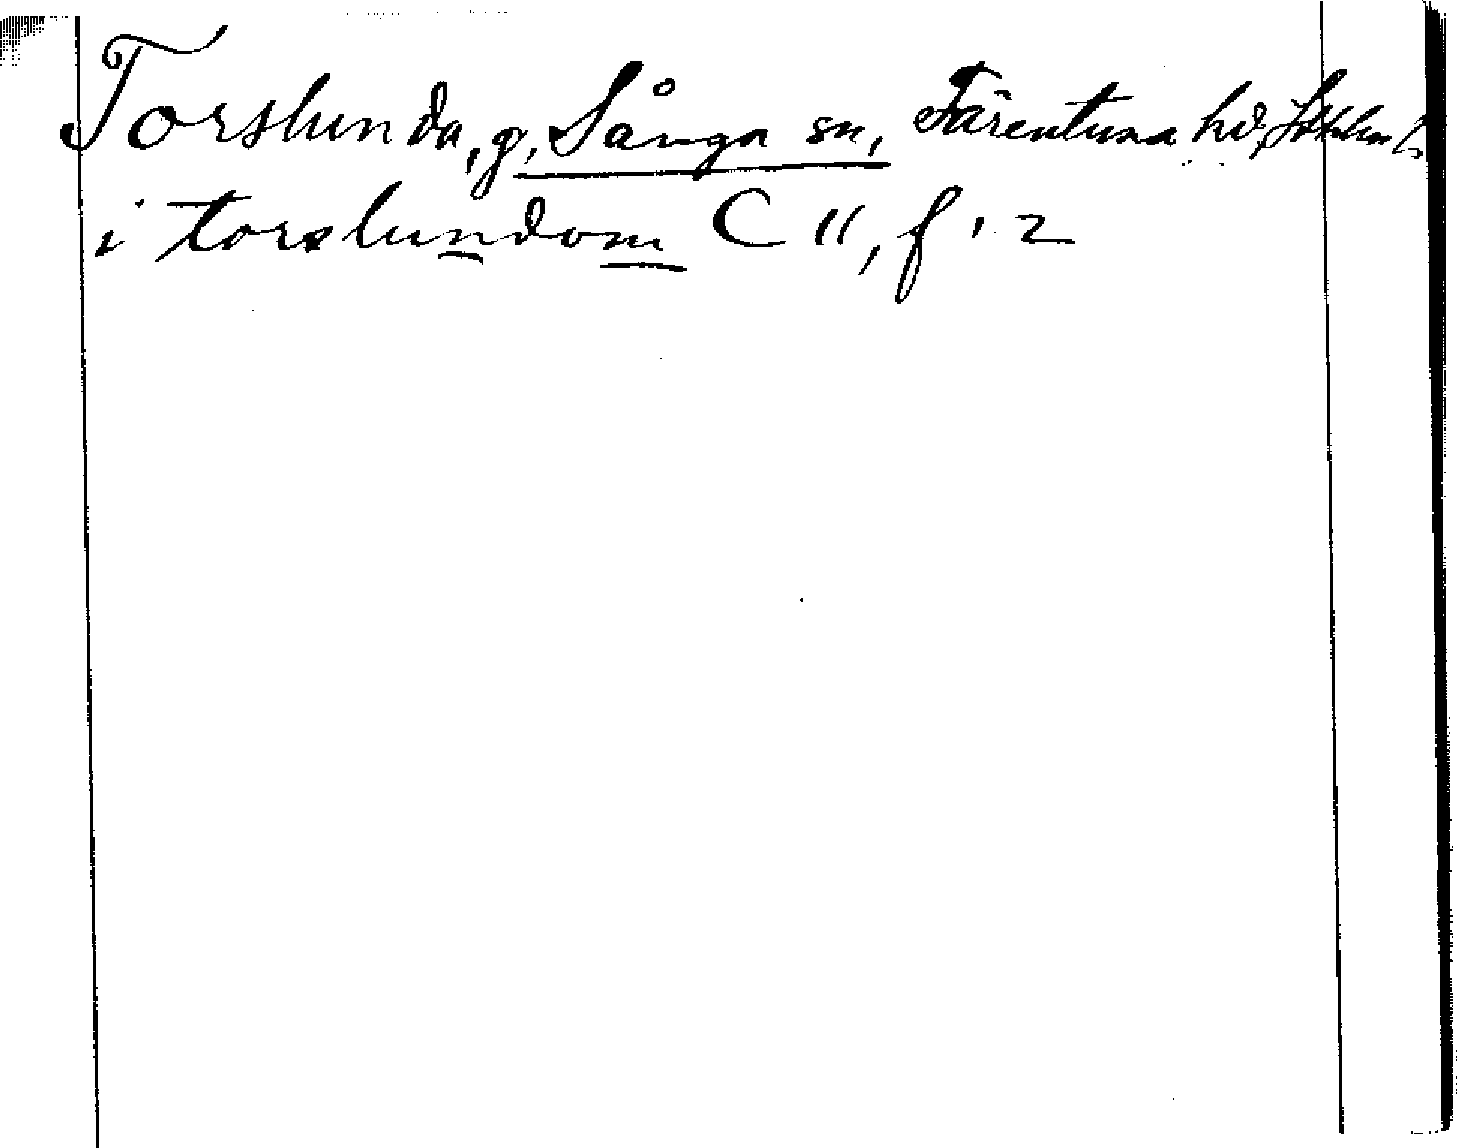 Torslunda, g, Sånga sn, Färentuna hd, Sthlms l.
i torslundom C 11, f. 2